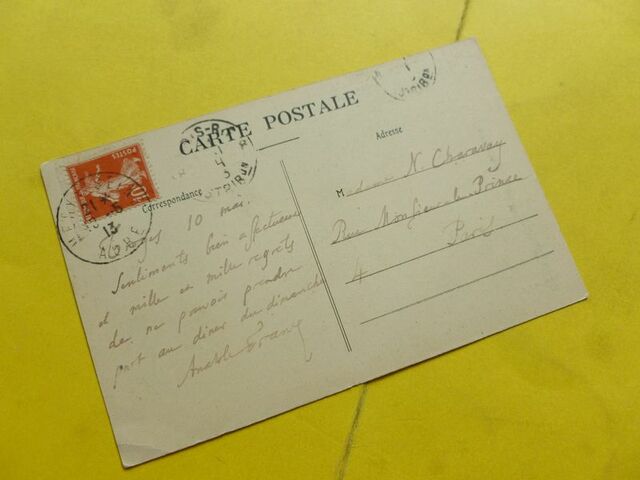 CARTE POSTALE
Correspondance
Adresse
POSTES
10
13
AUBE
10 mai
Sentiments bien affectueux
et mille et mille regrets
de ne pouvoir prendre
part au diner du dimanche
Anatole France
Madame N. Charavay
Rue Monsieur le Prince
4
Paris